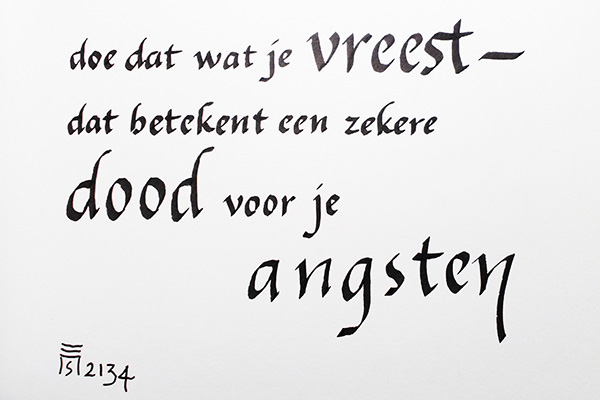 doe dat wat je vreest –
dat betekent een zekere
dood voor je
angsten
2134